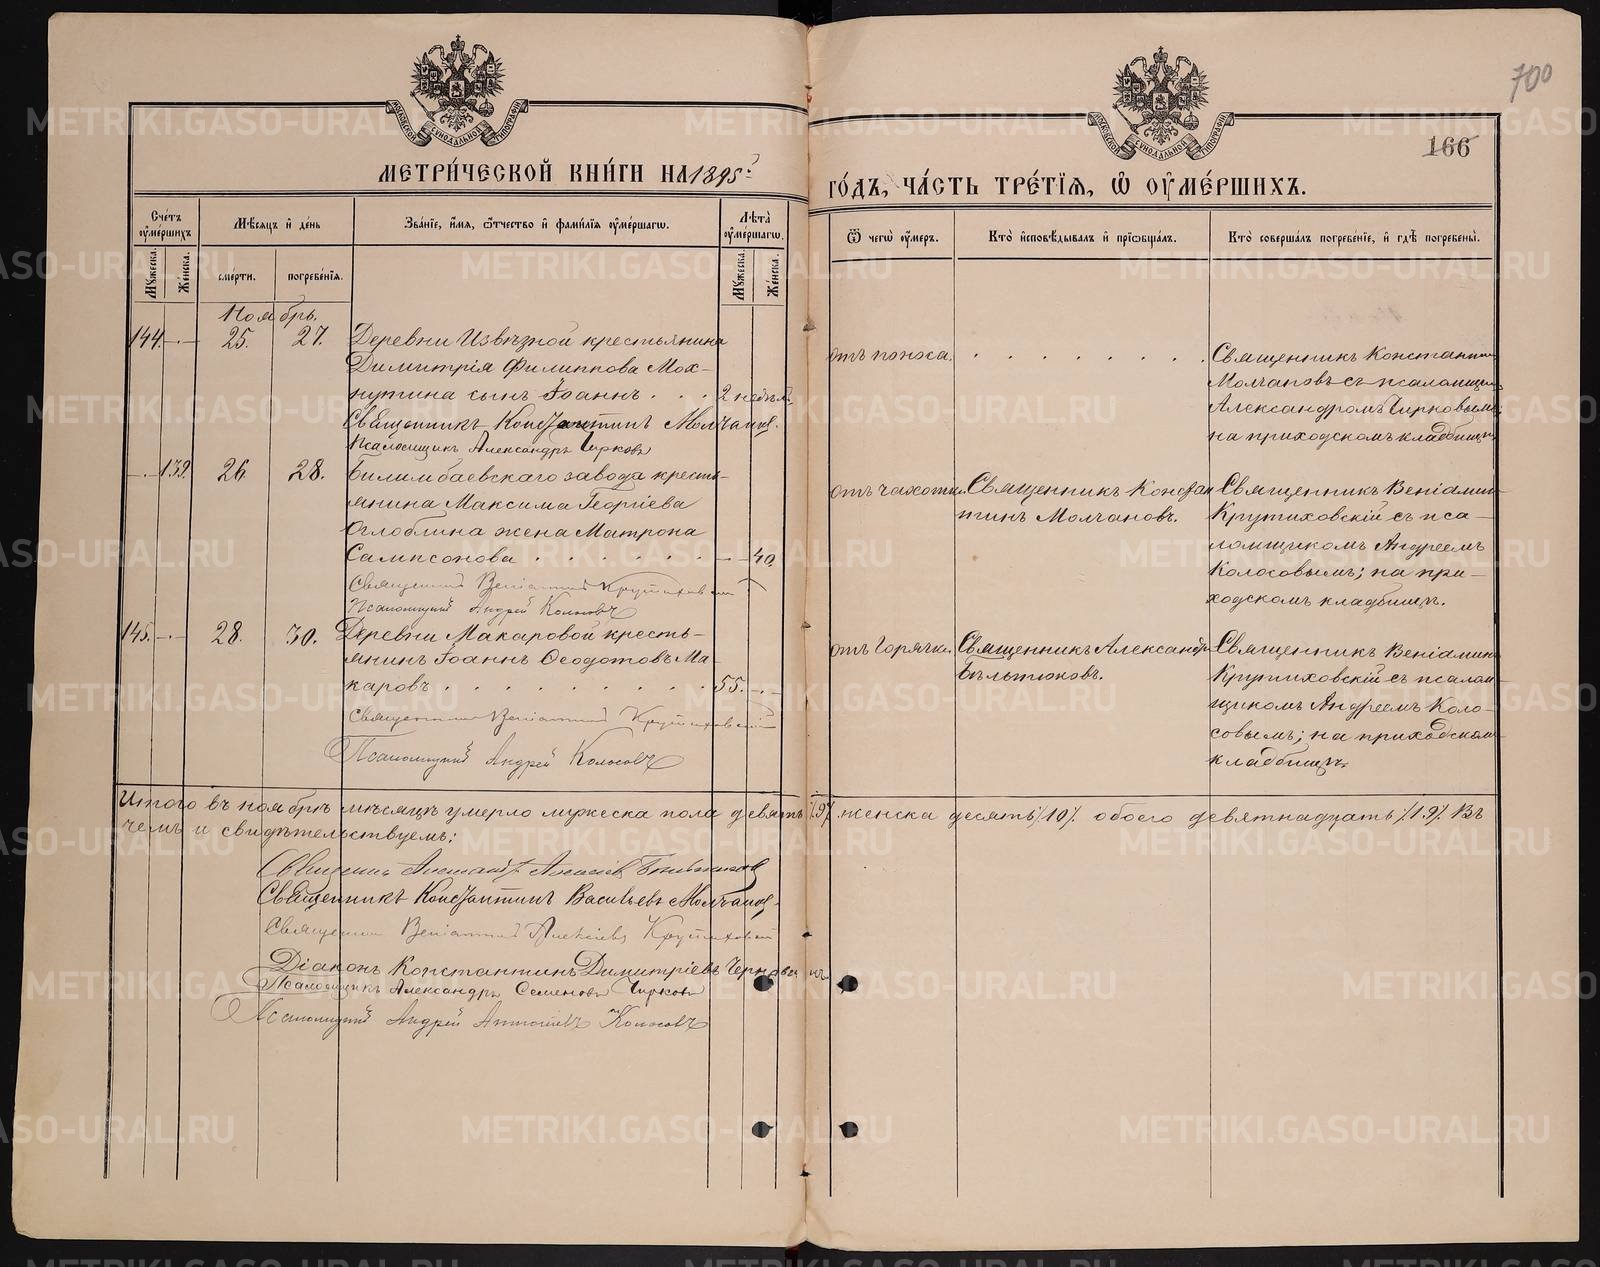 700
166
МЕТРИ́ЧЕСКОЙ КНИ́ГИ НА 1895 г.
ГО́ДЪ, ЧА́СТЬ ТРЕ́ТЇѦ, Ѽ ОУМЕ́РШИХЪ.
Сче́тъ оуме́ршихъ
Мѣсѧцъ и де́нь
Зва́нїе, и́мѧ, ѻтчество и фами́лїѧ оуме́ршагѡ.
Лѣта̀ оуме́ршагѡ.
Ѿ чегѡ̀ оу́меръ.
Кто̀ исповѣ́дывалъ и прїѡбща́лъ.
Кто̀ соверша́лъ погребе́нїе, и гдѣ̀ погребены̀.
Мꙋ́жеска.
Же́нска.
сме́рти.
погребе́нїѧ.
Мꙋ́жеска.
Же́нска.
Ноябрь.
144. - 25. 27. Деревни Извѣзной крестьянина
Димитрія Филиппова Мох-
нутина сынъ Іоаннъ . . . 2 недѣл.
Священникъ Константинъ Молчановъ.
Псаломщикъ Александръ Чирковъ
отъ поноса.
Священникъ Константин
Молчановъ съ псаломщик
Александромъ Чирковымъ;
на приходскомъ кладбищѣ.
- 139. 26. 28. Билимбаевскаго завода кресть-
янина Максима Георгіева
Оглоблина жена Матрона
Сампсонова . . . . . . . - 40.
Священникъ Веніаминъ Крутиховскій
Псаломщикъ Андрей Колосовъ
отъ чахотки.
Священникъ Констан
тинъ Молчановъ.
Священникъ Веніамин
Крутиховскій съ пса-
ломщикомъ Андреемъ
Колосовымъ; на при-
ходскомъ кладбищѣ.
145. - 28. 30. Деревни Макаровой кресть-
янинъ Іоаннъ Ѳеодотовъ Ма-
каровъ . . . . . . . . . 55. -
Священникъ Веніаминъ Крутиховскій
Псаломщикъ Андрей Колосовъ
отъ Горячки.
Священникъ Александр
Бѣльтюковъ.
Священникъ Веніамин
Крутиховскій съ псалом
щикомъ Андреемъ Коло-
совымъ; на приходском
кладбищѣ.
Итого въ ноябрѣ мѣсяцѣ умерло мужеска пола девять /9/ женска десять /10/. обоего девятнадцать /19/. Въ
чемъ и свидѣтельствуемъ:
Священникъ Александръ Алексіевъ Бѣльтюковъ
Священникъ Константинъ Васильевъ Молчановъ.
Священникъ Веніаминъ Алексіевъ Крутиховскій
Діаконъ Константинъ Димитріевъ Чернавинъ
Псаломщикъ Александръ Семеновъ Чирковъ
Псаломщикъ Андрей Антоніевъ Колосовъ
METRIKI.GASO-URAL.RU